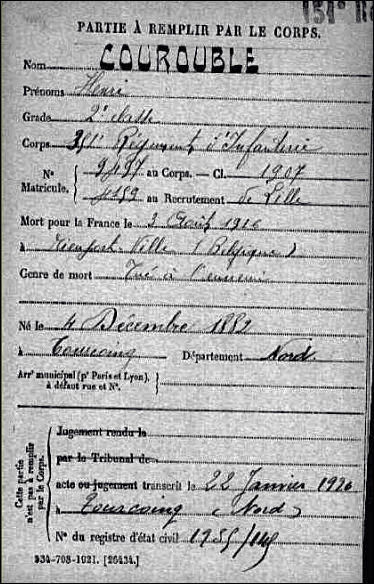 151e R
PARTIE À REMPLIR PAR LE CORPS.
Nom COUROUBLE
Prénoms Henri
Grade 2e classe
Corps Régiment d'Infanterie
No Matricule. au Corps. — Cl. 1907
au Recrutement de Lille
Mort pour la France le 2 Août 1916
à Nieuport-Ville (Belgique)
Genre de mort Tué à l'ennemi
Né le 4 Décembre 1882
à Tourcoing Département Nord
Arrt municipal (pr Paris et Lyon), à défaut rue et No.
Cette partie n'est pas à remplir par le Corps.
Jugement rendu le
par le Tribunal de
acte ou jugement transcrit le 22 Janvier 1920
à Tourcoing (Nord)
No du registre d'état civil
534-708-1921. [26434.]